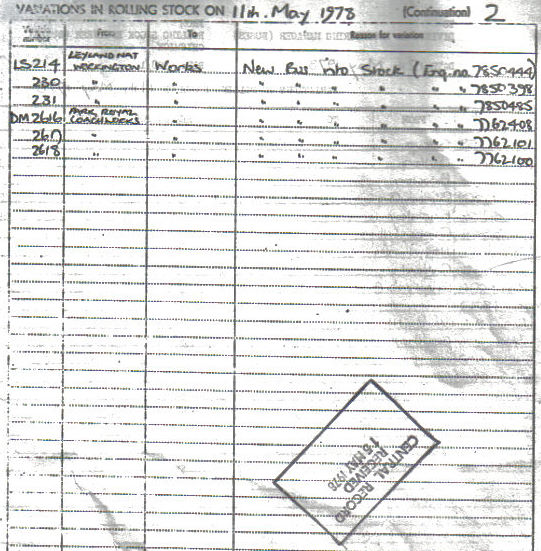 VARIATIONS IN ROLLING STOCK ON 11th. May 1978 (Continuation) 2
number From To Reason for variation
LS214 LEYLAND NAT WORKINGTON Works New Bus into Stock (Eng. no. 7850444)
230 " " " " " " " " 7850398
231 " " " " " " " " 7850485
DM2616 PARK ROYAL COACHWORKS " " " " " " " 7762408
2617 " " " " " " " " 7762101
2618 " " " " " " " " 7762100
CENTRAL RECORD
RECEIVED
15 MAY 1978